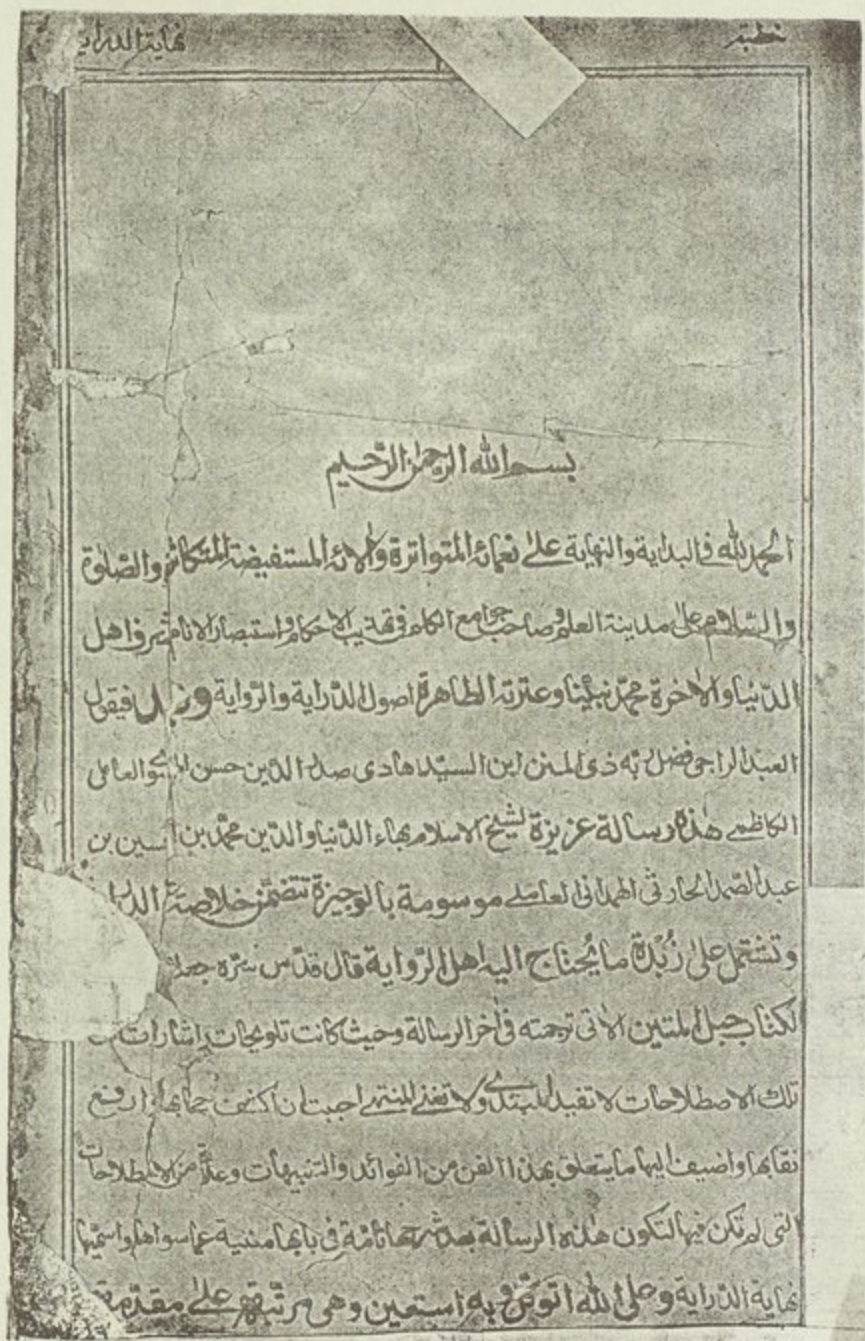 خطبته
نهاية الدراية
بسم الله الرحمن الرحيم
الحمد لله في البداية والنهاية على نعمائه المتواترة والائه المستفيضة المتكاثرة والصلوة
والسلام على مدينة العلم وصاحب جوامع الكلم في تهذيب الاحكام واستبصار الانام شرف اهل
الدنيا والاخرة محمد نبينا وعترته الطاهرة اصول الدراية والرواية وبعد فيقول
العبد الراجي فضل ربه ذي المنن ابن السيد هادي صدر الدين حسن الموسوي العاملي
الكاظمي هذه رسالة عزيزة لشيخ الاسلام بهاء الدنيا والدين محمد بن الحسين بن
عبد الصمد الحارثي الهمداني العاملي موسومة بالوجيزة تتضمن خلاصة
وتشتمل على زُبْدة ما يُحتاج اليه اهل الرواية قال قدّس سرّه
لكتاب حبل المتين الاتي ترجمته في اخر الرسالة وحيث كانت تلويحات اشارات
تلك الاصطلاحات لا تفيد المبتدي ولا تغني المنتهي احببت ان اكشف حجابها وارفع
نقابها واضيف اليها ما يتعلق بهذا الفن من الفوائد والتنبيهات وعدّة من الاصطلاحات
التي لم تكن فيها لتكون هذه الرسالة بعد شرحها تامّة في بابها مغنية عما سواها واسميتها
نهاية الدراية وعلى الله اتوكل وبه استعين وهي مرتبة على